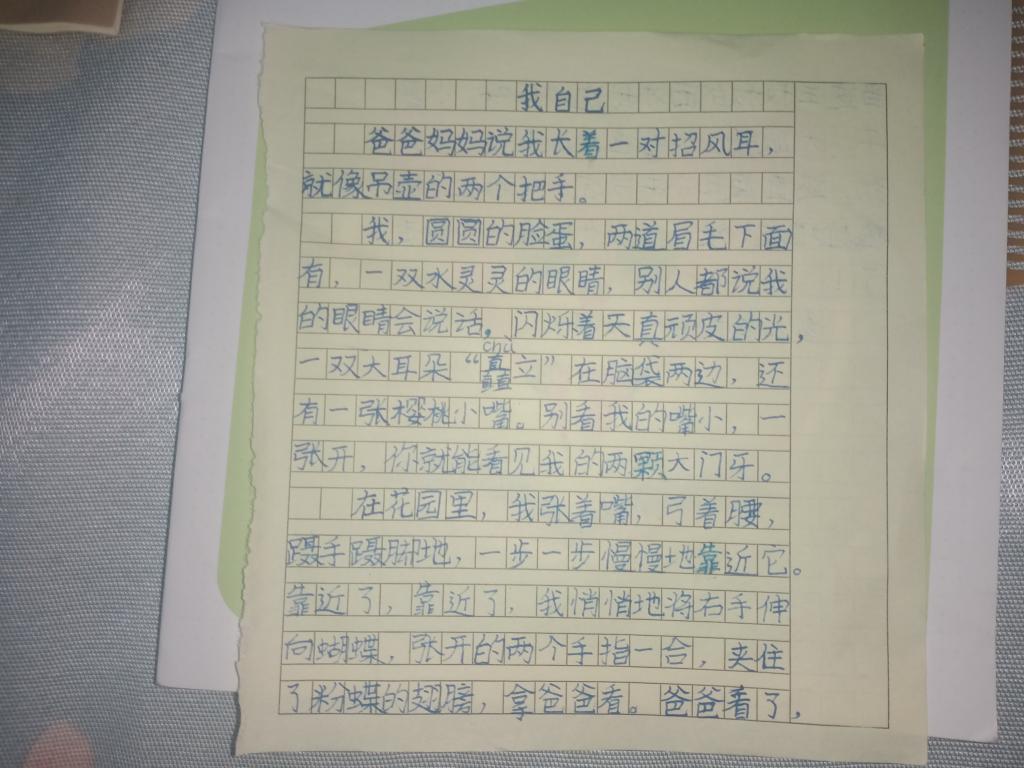 我自己
爸爸妈妈说我长着一对招风耳，
就像吊壶的两个把手。
我，圆圆的脸蛋，两道眉毛下面
有，一双水灵灵的眼睛，别人都说我
的眼睛会说话。闪烁着天真顽皮的光，
chù
一双大耳朵“矗立”在脑袋两边，还
有一张樱桃小嘴。别看我的嘴小，一
张开，你就能看见我的两颗大门牙。
在花园里，我张着嘴，弓着腰，
蹑手蹑脚地，一步一步慢慢地靠近它。
靠近了，靠近了，我悄悄地将右手伸
向蝴蝶，张开的两个手指一合，夹住
了粉蝶的翅膀，拿爸爸看。爸爸看了，